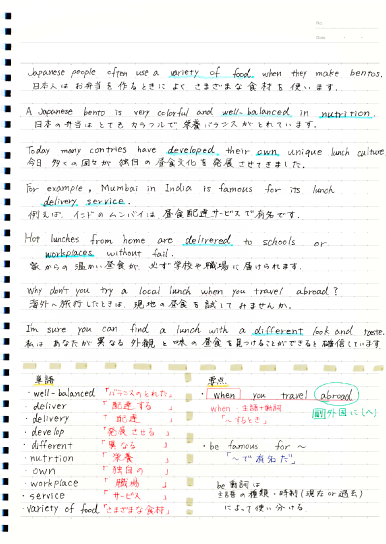 No.
Date
Japanese people often use a variety of food when they make bentos.
日本人はお弁当を作るときによく さまざまな食材を使います。
A Japanese bento is very colorful and well-balanced in nutrition.
日本の弁当はとてもカラフルで栄養バランスがとれています。
Today many contries have developed, their own unique lunch culture
今日 多くの国々が 独自の 昼食文化を 発展させてきました。
For example, Mumbai in India is famous for its lunch
delivery service.
例えば、インドのムンバイは昼食配達サービスで有名です。
Hot lunches from home are delivered to schools or
workplaces without fail.
家からの温かい昼食が、必ず学校や職場に届けられます。
Why don't you try a local lunch when you travel abroad?
海外へ旅行したときは、現地の昼食を試してみませんか。
I'm sure you can find a lunch with a different look and taste.
私は あなたが異なる外観と味の昼食を見つけることができると確信しています
単語
・well-balanced「バランスのとれた」
・deliver 「配達する」
・delivery 「配達」
・develop 「発展させる」
・different 「異なる」
・nutrtion 「栄養」
・own 「独自の」
・workplace 「職場」
・service 「サービス」
・variety of food「さまざまな食材」
要点
・when you travel abroad
when・主語+動詞
「~するとき」
副 外国に(へ)
・be famous for ~
「~で有名だ」
be動詞は
主語の種類・時制(現在or過去)
によって使い分ける